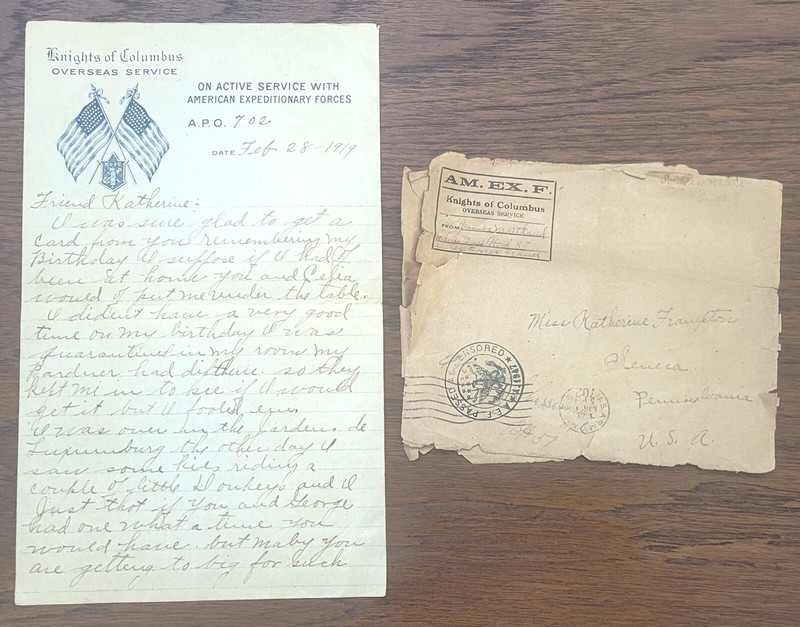 Knights of Columbus
OVERSEAS SERVICE
ON ACTIVE SERVICE WITH
AMERICAN EXPEDITIONARY FORCES
A.P.O. 702
DATE Feb 28-1919
Friend Katherine:
I was sure glad to get a
card from you remembering my
Birthday I supose if I had of
been at home you and Celia
would of put me under the table.
I dident have a very good
time on my birthday I was
quarantined in my room my
pardner had so they
kept me in to see if I would
get it but I fooled em.
I was over in the Jardens de
Luxumburg the other day I
saw some kids riding a
couple of little Donkeys and I
Just thot if you and George
had one what a time you
would have. but maby you
are getting to big for such
AM. EX. F.
Knights of Columbus
OVERSEAS SERVICE
FROM
A.E.F. PASSED AS CENSORED
Miss Katherine Frampton
Seneca
Pennsylvania
U. S. A.
702